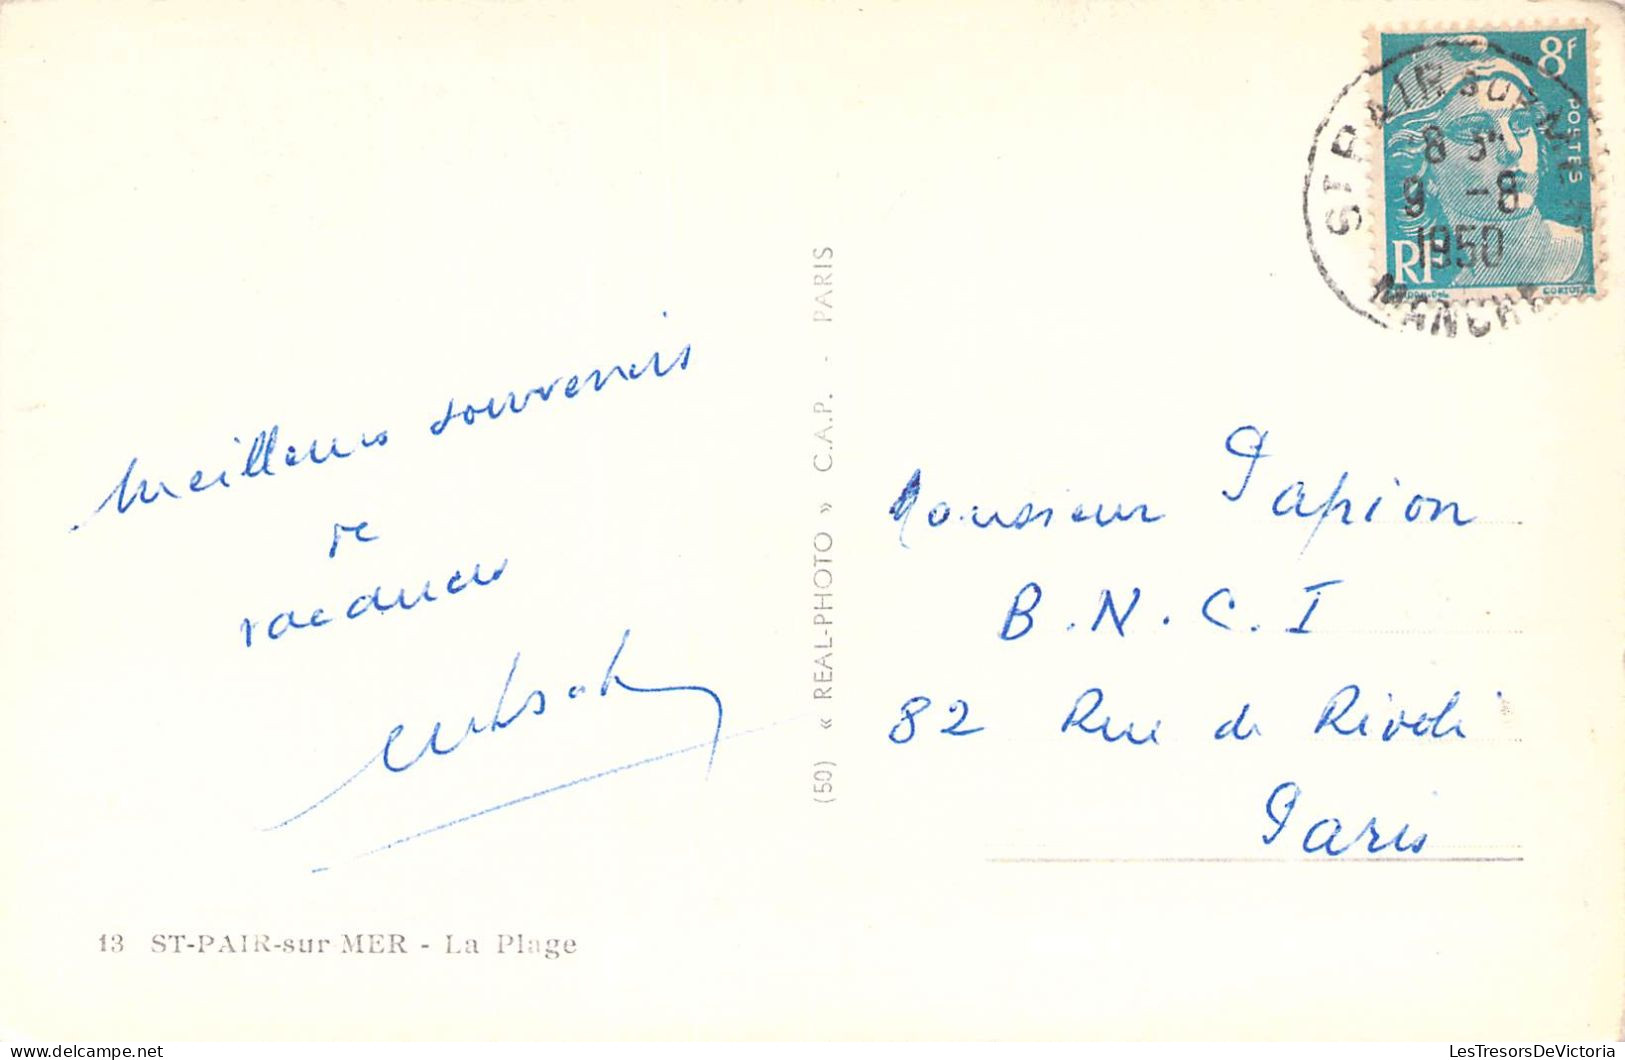 Meilleurs souvenirs
de
vacances
13 ST-PAIR-sur MER - La Plage
(50) « REAL-PHOTO » C.A.P. - PARIS
8F
POSTES
RF
ST PAIR SUR MER
8 9 -8
1950
MANCHE
Monsieur Papion
B.N.C.I
82 Rue de Rivoli
Paris
LesTresorsDeVictoria